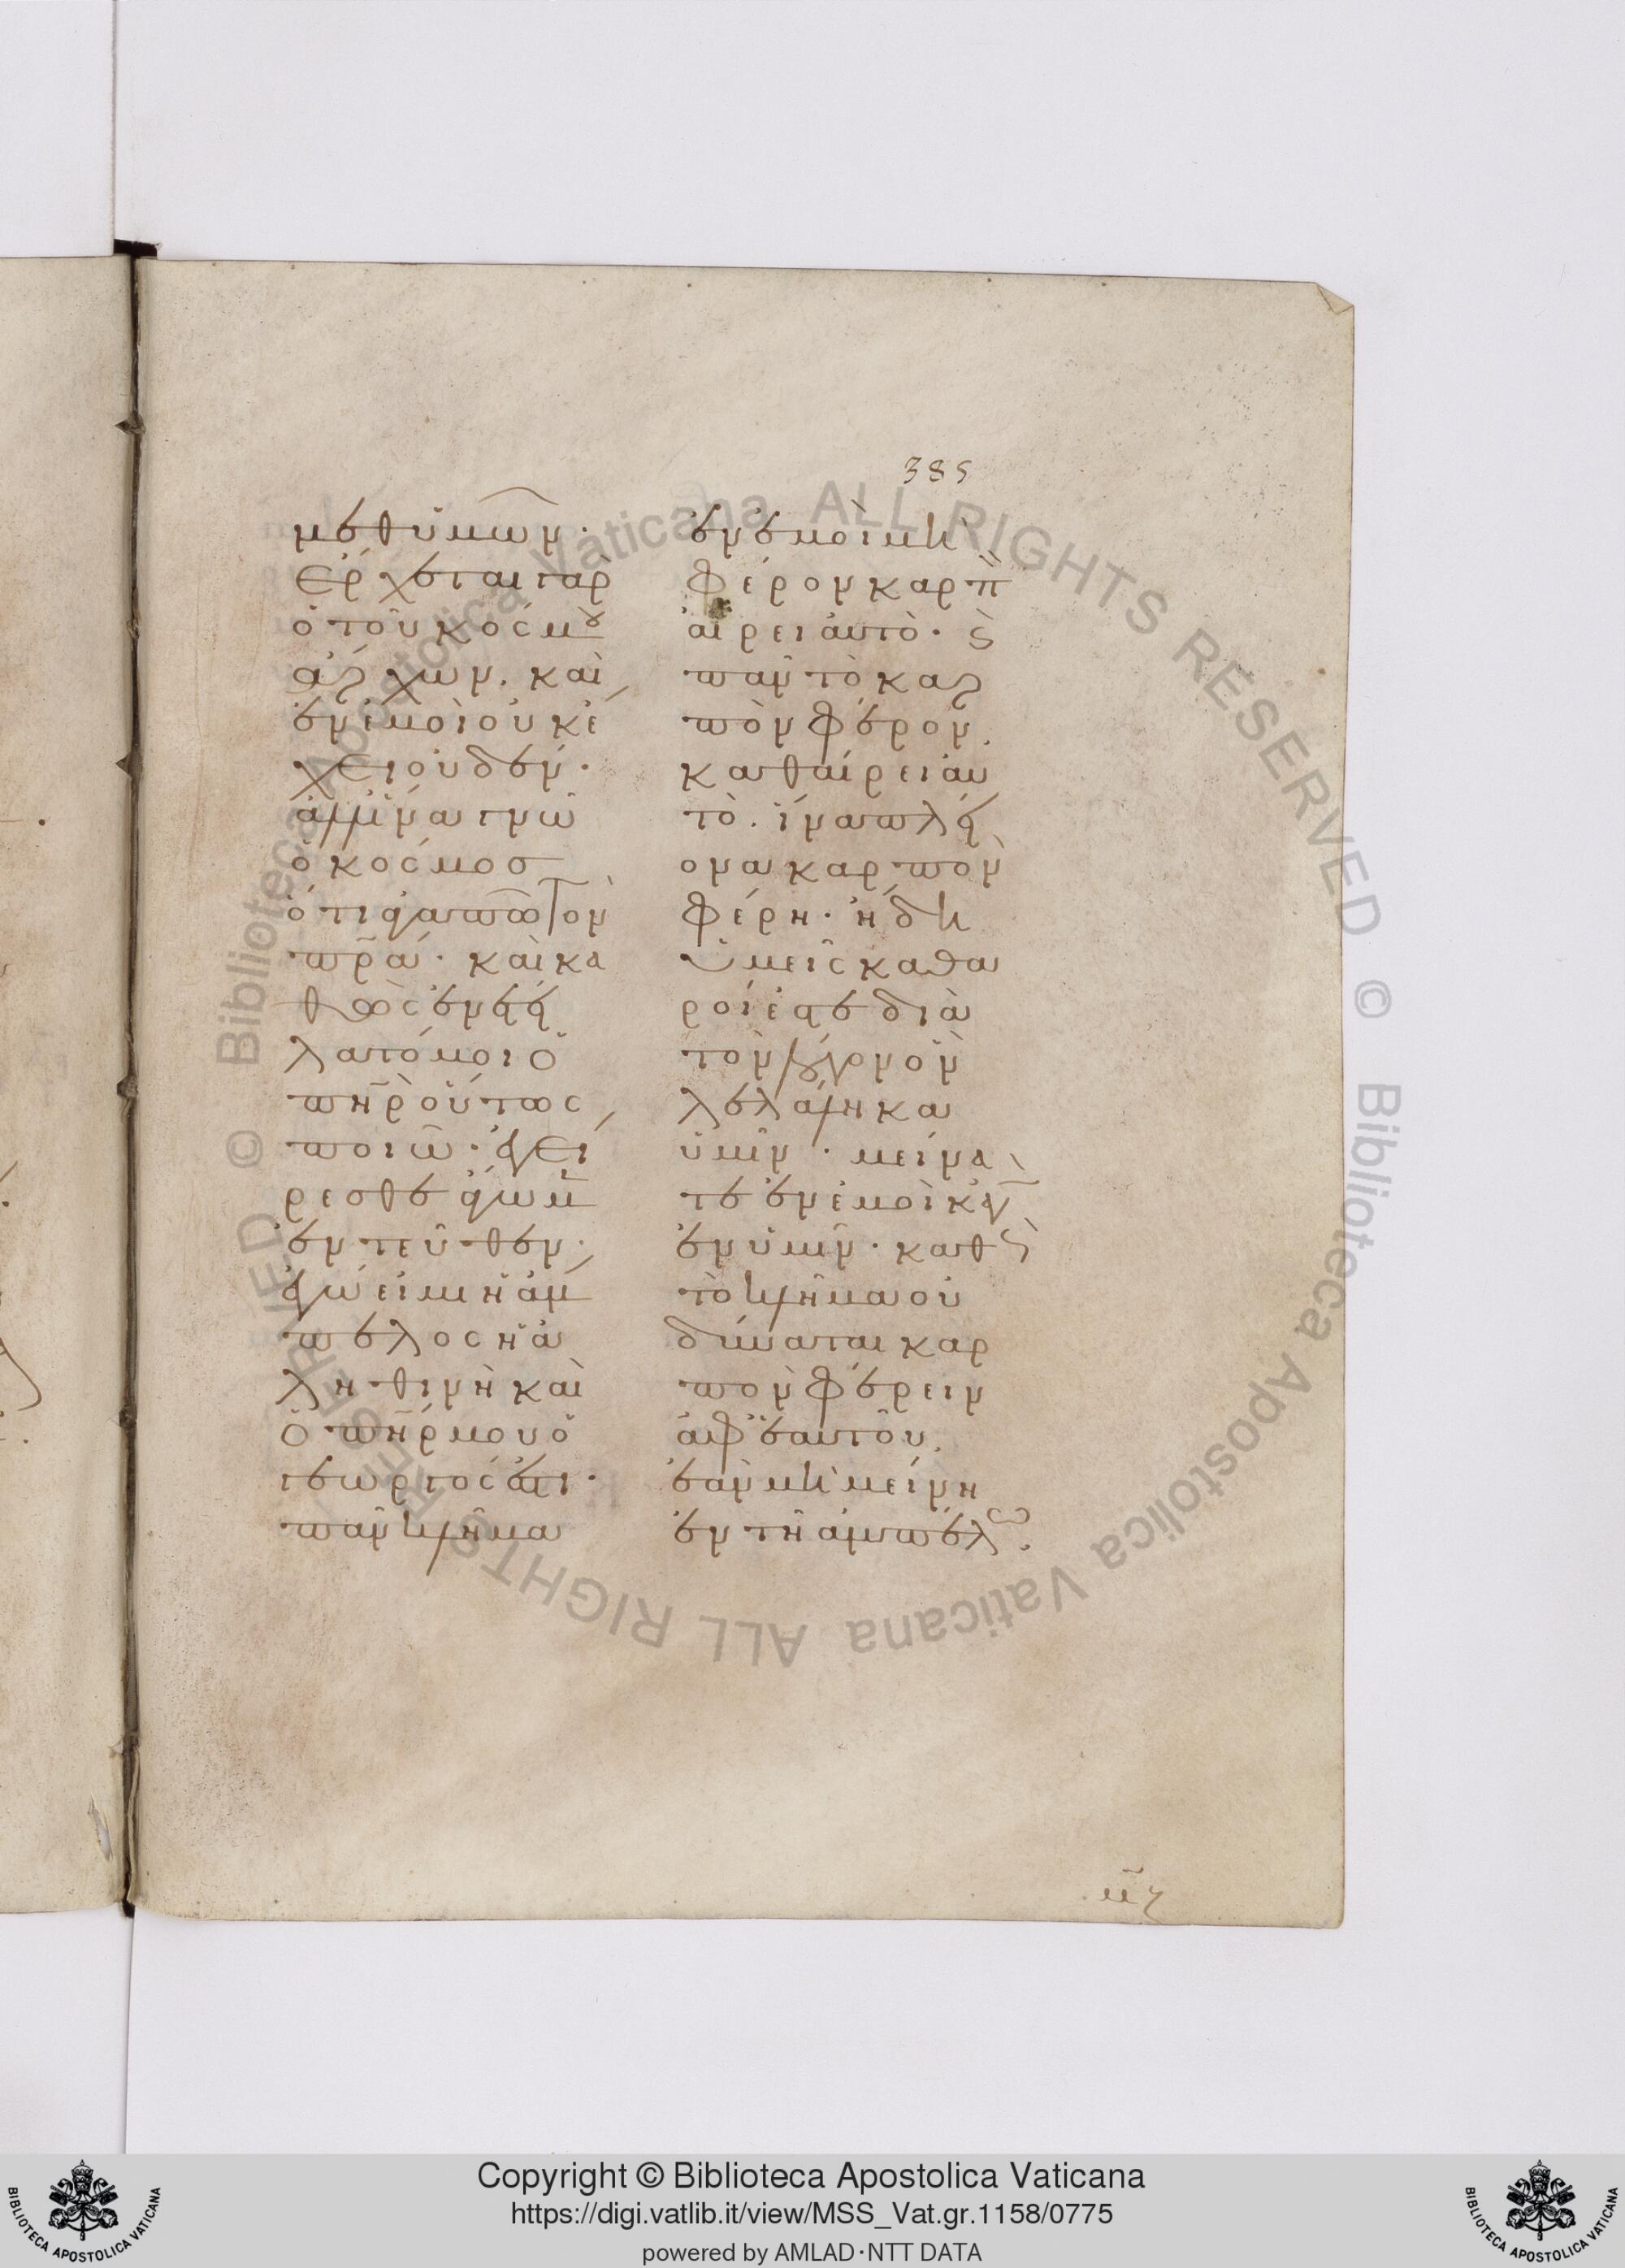 385
μεθ' ὑμῶν·
Ἔρχεται γὰρ
ὁ τοῦ κόσμου
ἄρχων. καὶ
ἐν ἐμοὶ οὐκ ἔ
χει οὐδέν·
ἀλλ' ἵνα γνῶ
ὁ κόσμος
ὅτι ἀγαπῶ τὸν
πρ̄α· καὶ κα
θὼς ἐνετεί
λατό μοι ὁ
πη̄ρ οὕτως
ποιῶ· ἐγεί
ρεσθε ἄγωμεν
ἐντεῦθεν·
ἐγώ εἰμι ἡ ἄμ
πελος ἡ ἀ
ληθινὴ καὶ
ὁ πη̄ρ μου ὁ
γεωργός ἐστι·
πᾶν κλῆμα
ἐν ἐμοὶ μὴ
φέρον καρπὸν
αἴρει αὐτό· καὶ
πᾶν τὸ καρ
πὸν φέρον
καθαίρει αὐ
τὸ. ἵνα πλεί
ονα καρπὸν
φέρη· ἤδη
ὑμεῖς καθα
ροί ἐστε διὰ
τὸν λόγον ὃν
λελάληκα
ὑμῖν· μείνα
τε ἐν ἐμοὶ κἀγὼ
ἐν ὑμῖν· καθὼς
τὸ κλῆμα οὐ
δύναται καρ
πὸν φέρειν
ἀφ' ἑαυτοῦ.
ἐὰν μὴ μείνη
ἐν τῆ ἀμπέλω.
Copyright © Biblioteca Apostolica Vaticana
https://digi.vatlib.it/view/MSS_Vat.gr.1158/0775
powered by AMLAD·NTT DATA
BIBLIOTECA APOSTOLICA VATICANA
BIBLIOTECA APOSTOLICA VATICANA
Biblioteca Apostolica Vaticana ALL RIGHTS RESERVED ©
Biblioteca Apostolica Vaticana ALL RIGHTS RESERVED ©